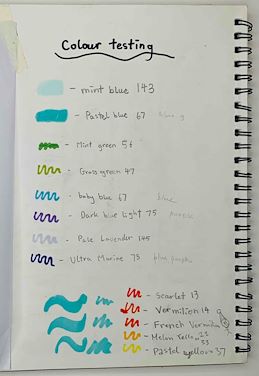 Colour testing
- mint blue 143
- Pastel blue 67
- Mint green 56
- Grass green 47
- baby blue 67 blue
- Dark blue light 75 purple
- Pale Lavender 145
- Ultra Marine 75 blue purple
- Scarlet 13
- Vermilion 14
- French Vermilion
- Melon Yellow
- Pastel yellow 37